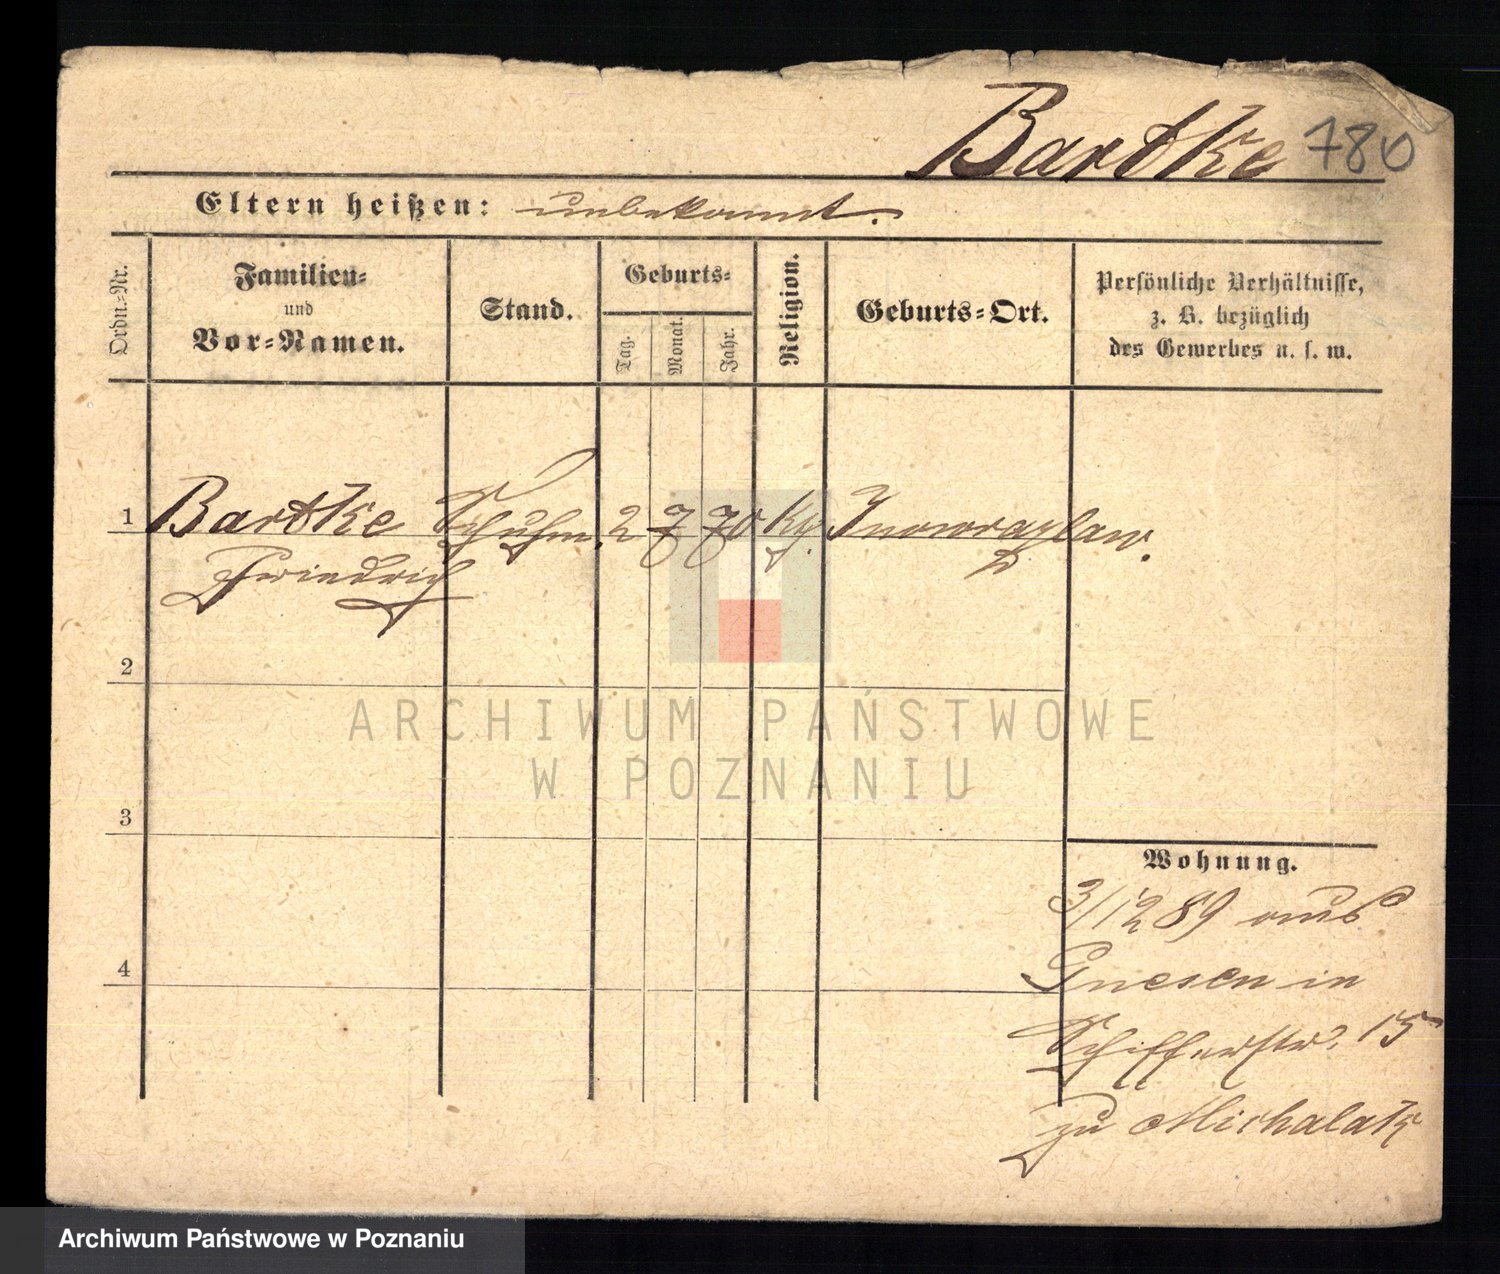 Bartke 780
Eltern heißen: unbekannt.
Ordn.=Nr.
Familien=
und
Vor=Namen.
Stand.
Geburts=
Tag.
Monat.
Jahr.
Religion.
Geburts=Ort.
Persönliche Verhältnisse,
z. B. bezüglich
des Gewerbes u. s. w.
1 Bartke Schuhm. 2 7 70 Inowrazlaw.
Friedrich
2
3
4
Wohnung.
3/12 89 aus
Gnesen in
Schifferstr. 15
zu Michalak
ARCHIWUM PAŃSTWOWE
W POZNANIU
Archiwum Państwowe w Poznaniu